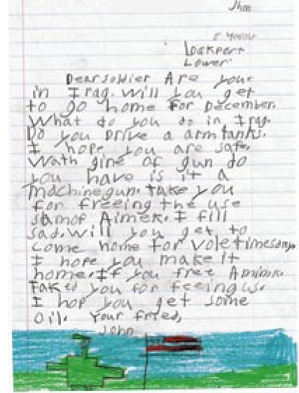 Jhon
Lockport
Lower
Dear soldier Are your
in Iraq. Will you get
to go home For December.
What do you do in Iraq.
Do you Drive a arm tanks.
I hope you are safe.
Wath gine of gun do
you have is it a
machinegun. take you
for freeing the use
of Aimek. I fill
sad. will you get to
come home for voletimesday
I hope you make it
home. If you free Amimk.
Taked you for feeing us.
I hop you get some
oil. Your frired,
John